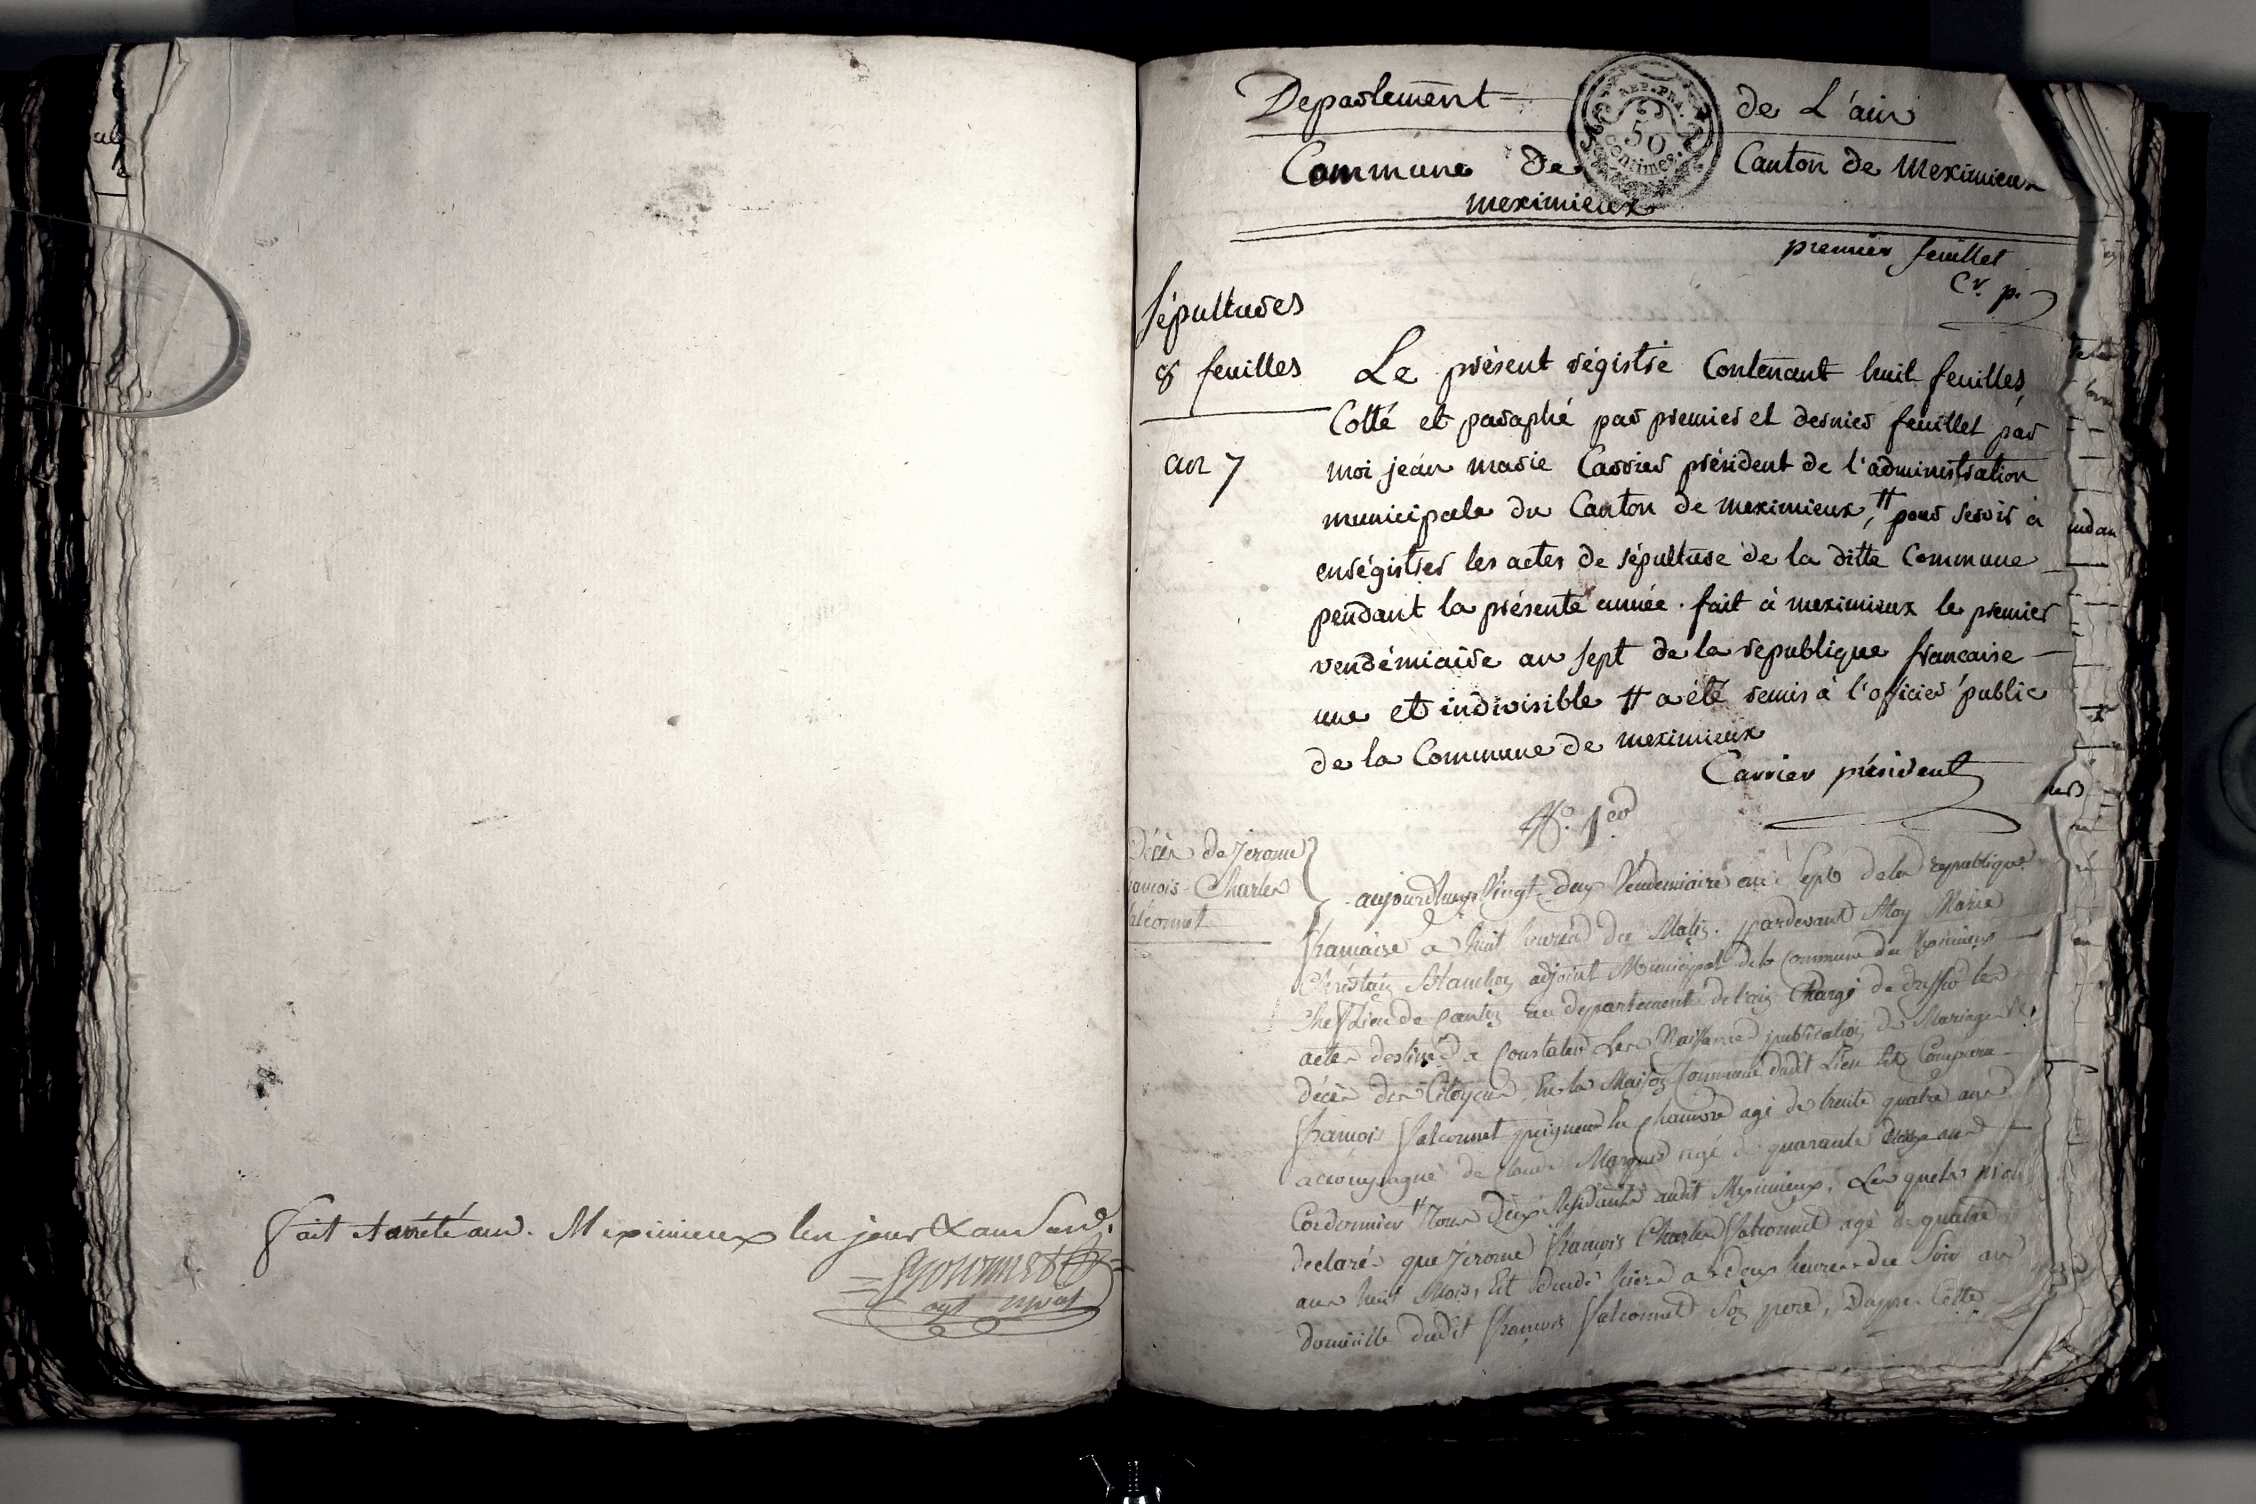 fait & arrêté aud. Meximieux les jour & an Susd.
agt mpal
Departement de L'ain
REP. FRA.
50
Centimes
Commune de Canton de meximieux
meximieux
premier feuillet
Cr. p.
sépultures
8 feuilles
an 7
Le présent régistre Contenant huit feuilles,
Cotté et paraphé par premier et dernier feuillet par
moi jean marie Carrier président de l'administration
municipale du Canton de meximieux, # pour servir à
enrégistrer les actes de sépulture de la ditte Commune
pendant la présente année. fait à meximieux le premier
vendémiaire an sept de la republique francaise
une et indivisible # a été remis à l'officier public
de la Commune de meximieux
Carrier président
No. 1er
Décès de Jerome
francois Charles
falconnet
aujourdhuy Vingt deux Vendemiaire an Sept de la republique
francaise a huit heures du Matin. pardevant Moy Marie
adjoint Municipal de la Commune de Meximieux
Chef Lieu de Canton au departement de l'ain Chargé de dresser les
actes destinés a Constater Les Naissances publication de Mariage &
décès des Citoyens, En la Maison Commune dudit Lieu Est Comparu
francois falconnet peigneur de Chanvre agé de trente quatre ans
accompagné de Claude agé de quarante deux ans
Cordonnier # Tous deux Residants audit Meximieux, Lesquels M'ont
declarés que Jérome francois Charles falconnet agé de quatre
ans huit Mois, Est décedé hiere a deux heures du Soir au
domicille dudit francois falconnet Son pere, Dapres Cette